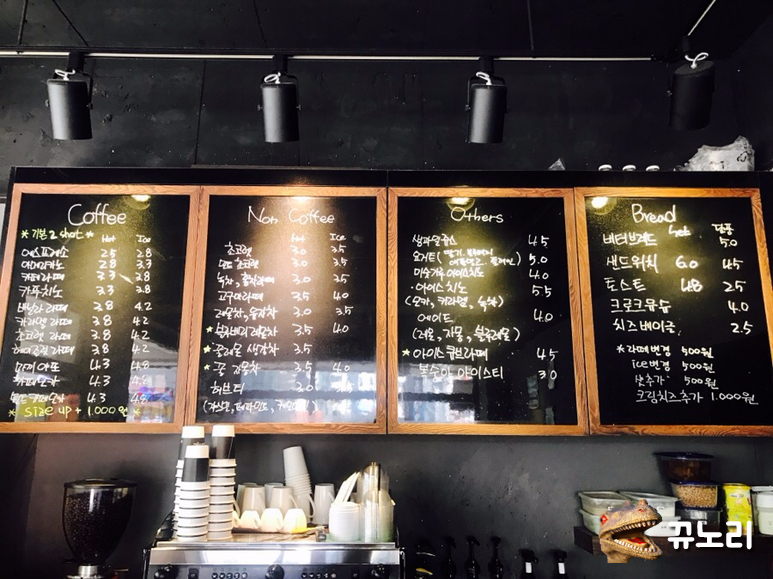 Coffee
*기본 2 shot*
Hot Ice
에스프레소 2.5 2.8
아메리카노 2.8 3.3
카페라떼 3.3 3.8
카푸치노 3.3 3.8
바닐라 라떼 3.8 4.2
카라멜 라떼 3.8 4.2
초코렛 라떼 3.8 4.2
헤이즈넛 라떼 3.8 4.2
4.3 4.8
카페모카 4.3
4.3
* SIZE UP + 1.000원 *
Non Coffee
Hot Ice
초코렛 3.0 3.5
민트 초코렛 3.0 3.5
녹차, 라떼 3.0 3.5
고구마라떼 3.5 4.0
레몬차, 유자차 3.0 3.5
*블루베리 레몬차 3.5 4.0
*꿀레몬 생강차 3.5
*꿀 자몽차 3.5 4.0
허브티 3.0
Others
생과일쥬스 4.5
요거트 (딸기, 블루베리 5.0
플레인)
미숫가루 아이스치노 4.0
·아이스치노 5.5
(모카, 카라멜, 녹차)
에이드 4.0
(레몬, 자몽, 블루레몬)
*아이스 큐브라떼 4.5
복숭아 아이스티 3.0
Bread
Set 단품
버터브레드 5.0
샌드위치 6.0 4.5
토스트 4.8 2.5
크로크무슈 4.0
치즈 베이글 2.5
*라떼변경 500원
ice변경 500원
샷추가 500원
크림치즈추가 1.000원
뀨노리